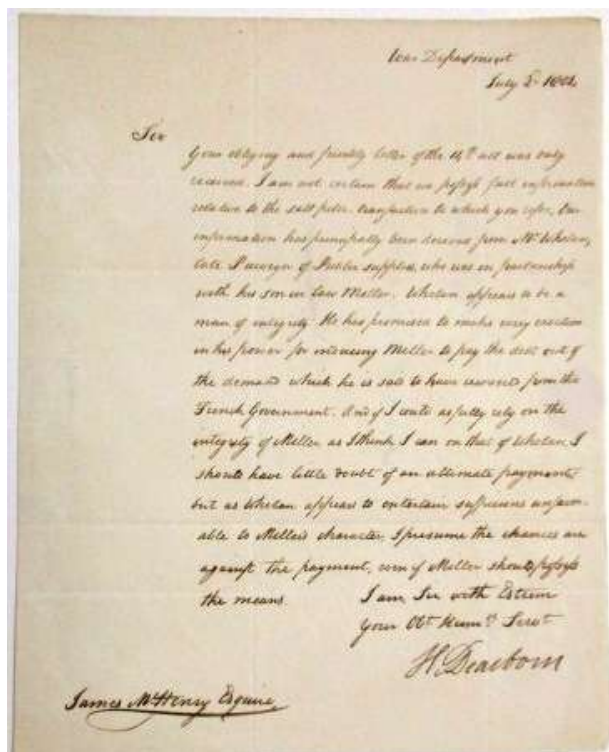 War Department
July 2 180
Sir
Your obliging and friendly letter of the 14th ult was duly
received. I am not certain that we possess full information
relative to the salt petre transaction to which you refer, Our
information has principally been derived from Mr Whelan,
late Purveyor of Public supplies, who was in partnership
with his son in law Miller. Whelan appears to be a
man of integrity. He has promised to make every exertion
in his power for inducing Miller to pay the debt out of
the demand which he is said to have received from the
French Government. And if I could as fully rely on the
integrity of Miller as I think I can on that of Whelan, I
should have little doubt of an ultimate payment,
but as Whelan appears to entertain suspicions unfavor-
able to Miller's character, I presume the chances are
against the payment, even if Miller should possess
the means.
I am, Sir with Esteem
Your Obt Humle Servt
H. Dearborn
James McHenry Esquire